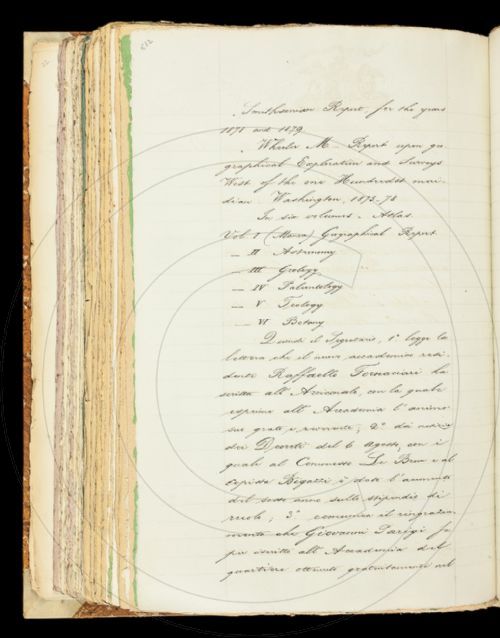 Smithsonian Report for the years
1878 and 1879.
Wheeler M. Report upon geo
graphical Exploration and Surveys
West of the one Hundredth meri
dian. Washington, 1875-78
In six volumes. Atlas.
Vol. I (Manca) Geographical Report.
— II Astronomy
— III Geology
— IV Paleontology
— V Zoology
— VI Botany
Quindi il Segretario, 1° legge la
lettera che il nuovo accademico resi
dente Raffaello Fornaciari ha
scritto all' Arciconsolo, con la quale
esprime all' Accademia l' animo
suo grato e riverente; 2° dà notizia
dei Decreti del 6 Agosto, con i
quali al Commesso Le Brun e al
Copista Bigazzi è dato l' aumento
del sesto anno sullo stipendio di
ruolo; 3° comunica il ringrazia
mento che Giovanni fa
per iscritto all' Accademia del
quartiere ottenuto gratuitamente nel